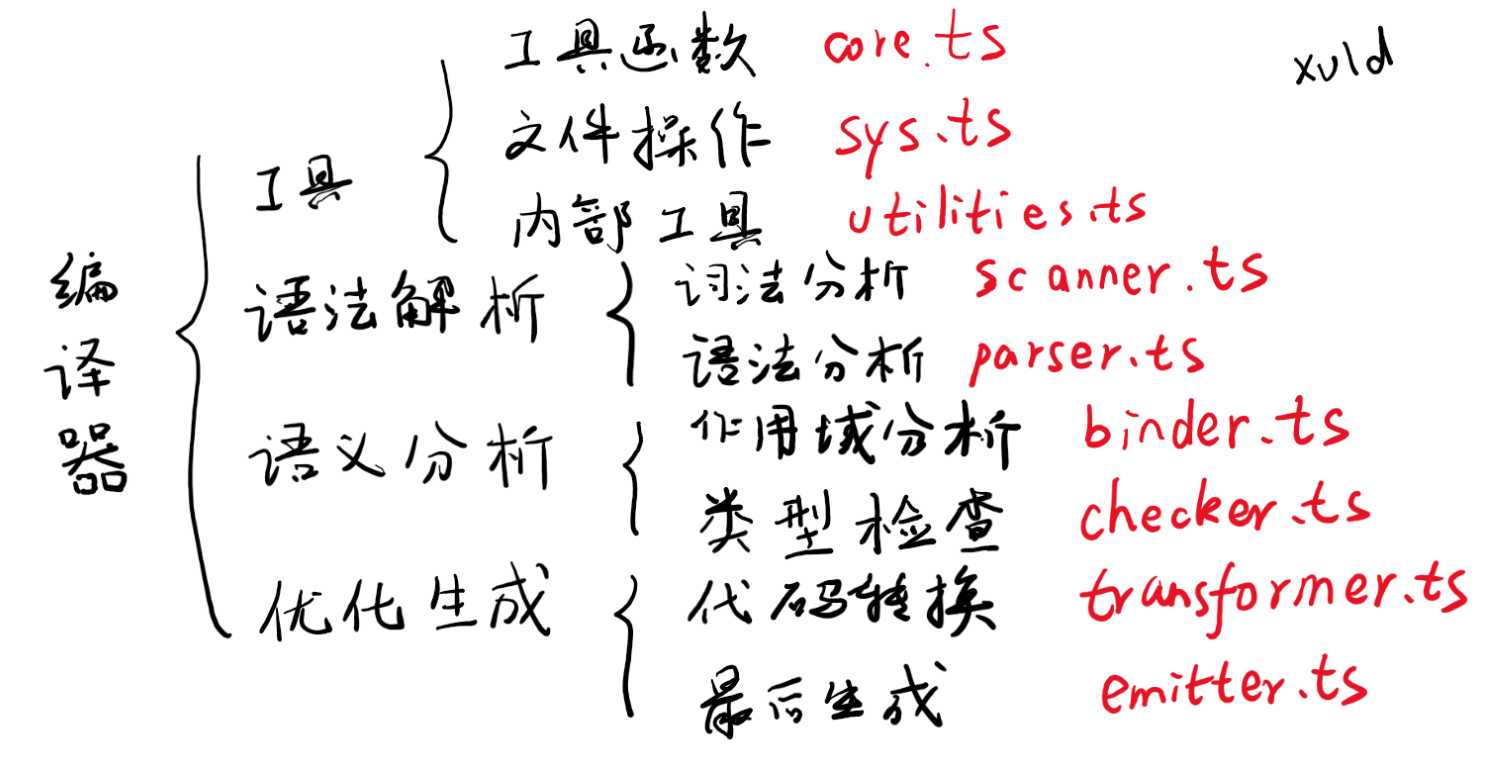 工具函数 core.ts
xuld
文件操作 sys.ts
工具
内部工具 utilities.ts
编译器
词法分析 scanner.ts
语法解析
语法分析 parser.ts
作用域分析 binder.ts
语义分析
类型检查 checker.ts
代码转换 transformer.ts
优化生成
最后生成 emitter.ts